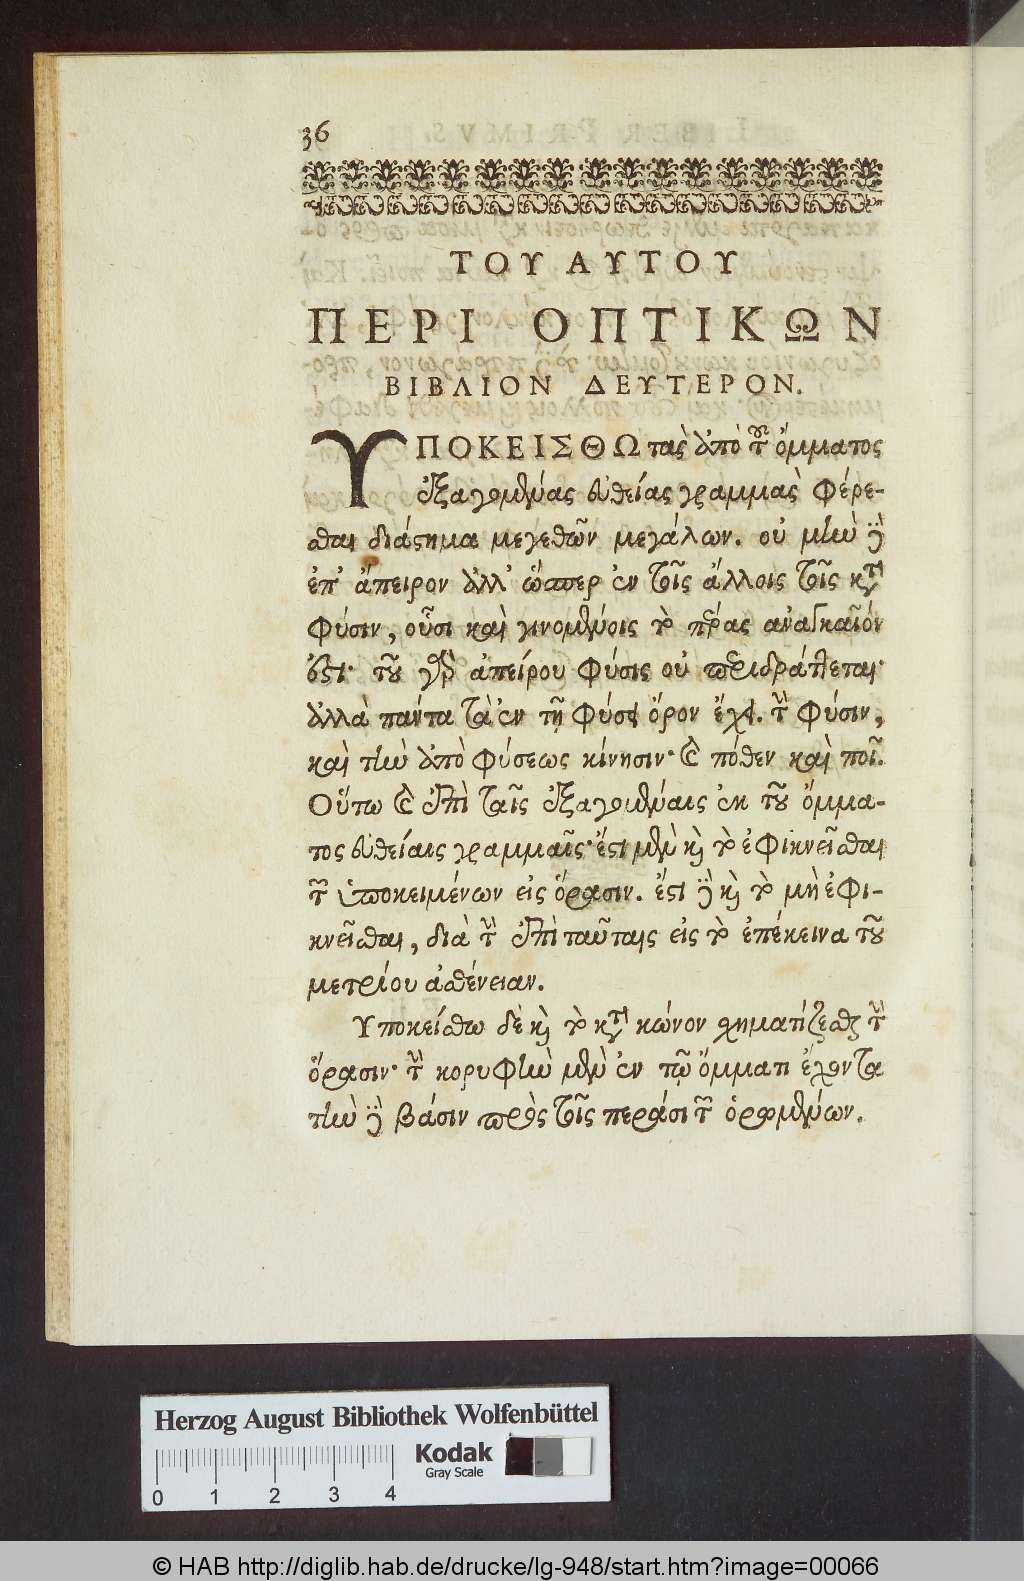 36
ΤΟΥ ΑΥΤΟΥ
ΠΕΡΙ ΟΠΤΙΚΩΝ
ΒΙΒΛΙΟΝ ΔΕΥΤΕΡΟΝ.
ΥΠΟΚΕΙΣΘΩ τὰς ἀπὸ τοῦ ὄμματος
ἐξαγομένας εὐθείας γραμμὰς φέρε-
σθαι διάστημα μεγεθῶν μεγάλων. οὐ μὴν δὲ
ἐπ’ ἄπειρον ἀλλ’ ὥσπερ ἐν τοῖς ἄλλοις τοῖς κατὰ
φύσιν, οὖσι καὶ γινομένοις τὸ πέρας ἀναγκαῖόν
ἐστι· τοῦ γὰρ ἀπείρου φύσις οὐ περιδράττεται·
ἀλλὰ πάντα τὰ ἐν τῇ φύσει ὅρον ἔχει. τὴν φύσιν,
καὶ τὴν ἀπὸ φύσεως κίνησιν· καὶ πόθεν καὶ ποῖ.
Οὕτω καὶ ἐπὶ ταῖς ἐξαγομέναις ἐκ τοῦ ὄμμα-
τος εὐθείαις γραμμαῖς· ἔστι μὲν καὶ τὸ ἐφικνεῖσθαι
τῶν ὑποκειμένων εἰς ὅρασιν. ἔστι δὲ καὶ τὸ μὴ ἐφι-
κνεῖσθαι, διὰ τὴν ἐπὶ ταῦταις εἰς τὸ ἐπέκεινα τοῦ
μετρίου ἀσθένειαν.
Υποκείσθω δὲ καὶ τὸ κατὰ κώνον σχηματίζεσθαι τὴν
ὅρασιν· τὴν κορυφὴν μὲν ἐν τῷ ὄμματι ἔχοντα
τὴν δὲ βάσιν πρὸς τοῖς πέρασι τῶν ὁρωμένων.
Herzog August Bibliothek Wolfenbüttel
Kodak
Gray Scale
0 1 2 3 4
© HAB http://diglib.hab.de/drucke/lg-948/start.htm?image=00066